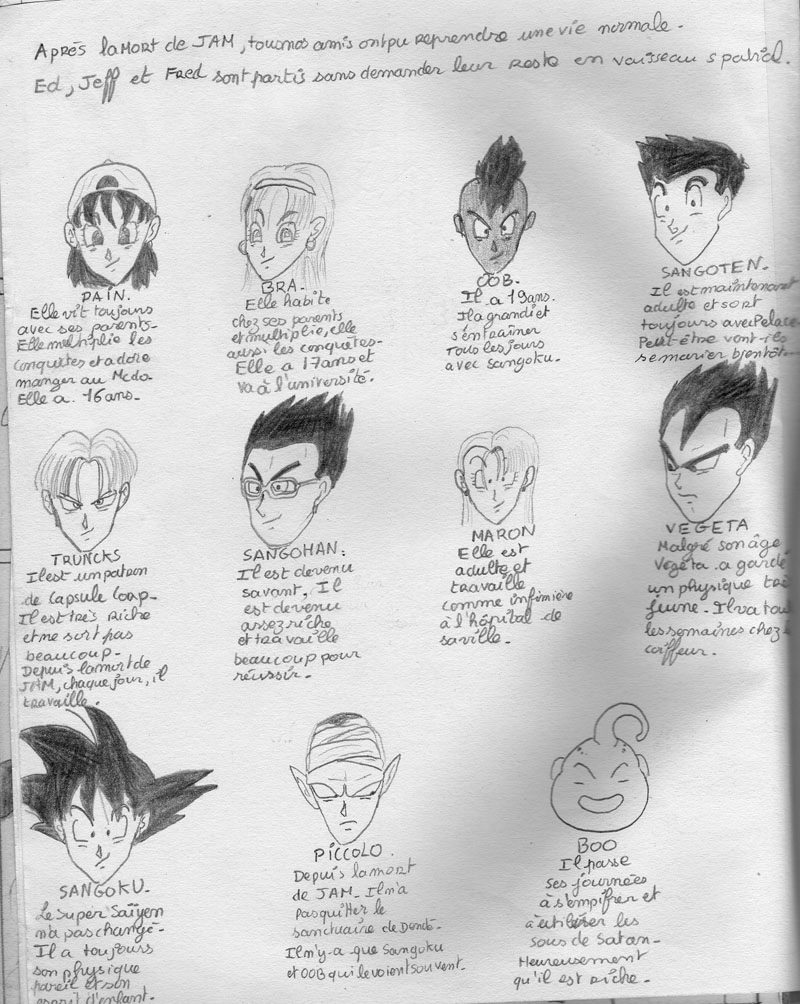 Après la mort de JAM, tous nos amis ont pu reprendre une vie normale.
Ed, Jeff et Fred sont partis sans demander leur reste en vaisseau spatial.
PAIN.
Elle vit toujours
avec ses parents.
Elle multiplie les
conquêtes et adore
manger au Mcdo
Elle a 16 ans.
BRA.
Elle habite
chez ses parents
et multiplie, elle
aussi les conquêtes.
Elle a 17 ans et
va à l'université.
OOB.
Il a 19 ans.
Il a grandi et
s'entraîner
tous les jours
avec Sangoku.
SANGOTEN.
Il est maintenant
adulte et sort
toujours avec Palace
Peut-être vont-ils
se marier bientôt...
TRUNCKS
Il est un patron
de Capsule Corp.
Il est très riche
et ne sort pas
beaucoup.
Depuis la mort de
JAM, chaque jour, il
travaille.
SANGOHAN:
Il est devenu
savant, Il
est devenu
assez riche
et travaille
beaucoup pour
réussir.
MARON
Elle est
adulte et
travaille
comme infirmière
à l'hôpital de
sa ville.
VEGETA
Malgré son âge,
Vegeta a gardé
un physique très
jeune. Il va tou
les semaines chez le
coiffeur.
SANGOKU.
Le Super Saïyen
n'a pas changé.
Il a toujours
son physique
pareil et son
esprit d'enfant.
PICCOLO.
Depuis la mort
de JAM. Il n'a
pas quitter le
sanctuaire de Dendé.
Il n'y-a que Sangoku
et OOB qui le voient souvent.
BOO
Il passe
ses journées
à s'empiffrer et
à utiliser les
sous de Satan.
Heureusement
qu'il est riche.